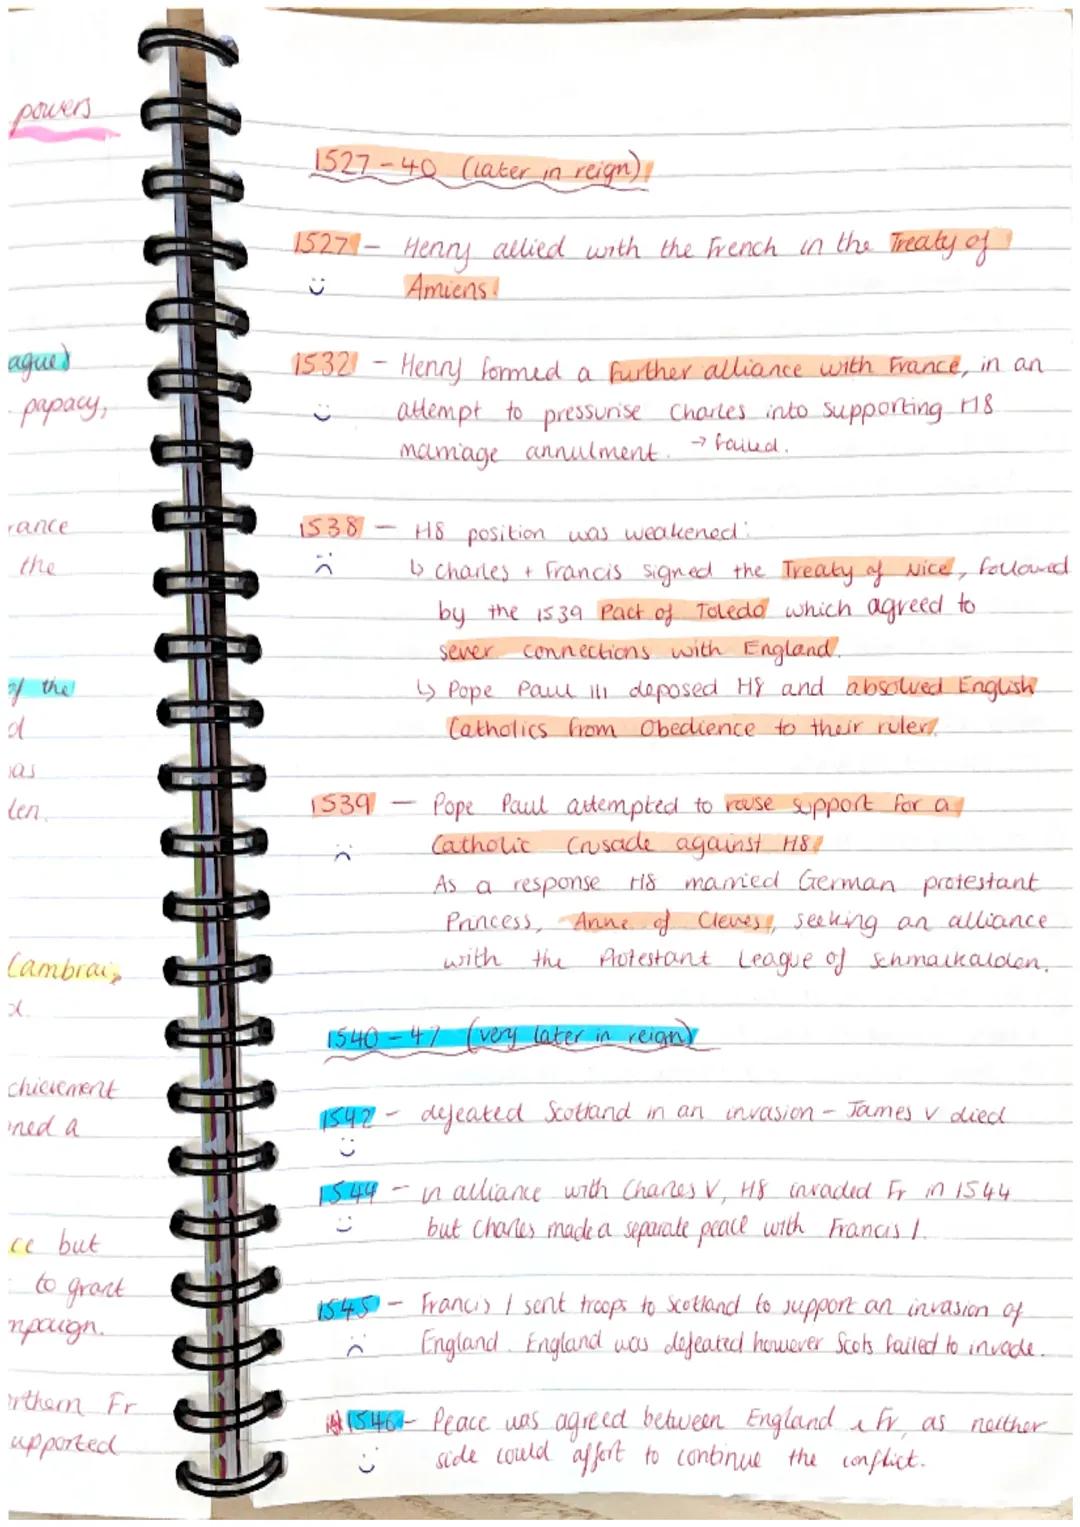 powers
ague)
papacy,
rance
the
of the
d
as
len.
Cambrai,
d.
chievement
ned a
ce but
to grant
mpaign.
rthern Fr
upported
1527-40 (later in reign)
1527 - Henry allied with the French in the Treaty of
Amiens.
1532 - Henry formed a further alliance with France, in an
attempt to pressurise Charles into supporting H8
marriage annulment. → failed.
1538 - H8 position was weakened:
↳ Charles + Francis signed the Treaty of Nice, followed
by the 1539 Pact of Toledo which agreed to
sever connections with England.
↳ Pope Paul III deposed H8 and absolved English
Catholics from Obedience to their ruler.
1539 - Pope Paul attempted to rouse support for a
Catholic Crusade against H8.
As a response H8 married German protestant
Princess, Anne of Cleves, seeking an alliance
with the Protestant League of Schmalkalden.
1540-47 (very later in reign)
1542 - defeated Scotland in an invasion - James V died
1544 - in alliance with Charles V, H8 invaded Fr in 1544
but Charles made a separate peace with Francis I.
1545 - Francis I sent troops to Scotland to support an invasion of
England. England was defeated however Scots failed to invade.
1546 - Peace was agreed between England & Fr, as neither
side could affort to continue the conflict.